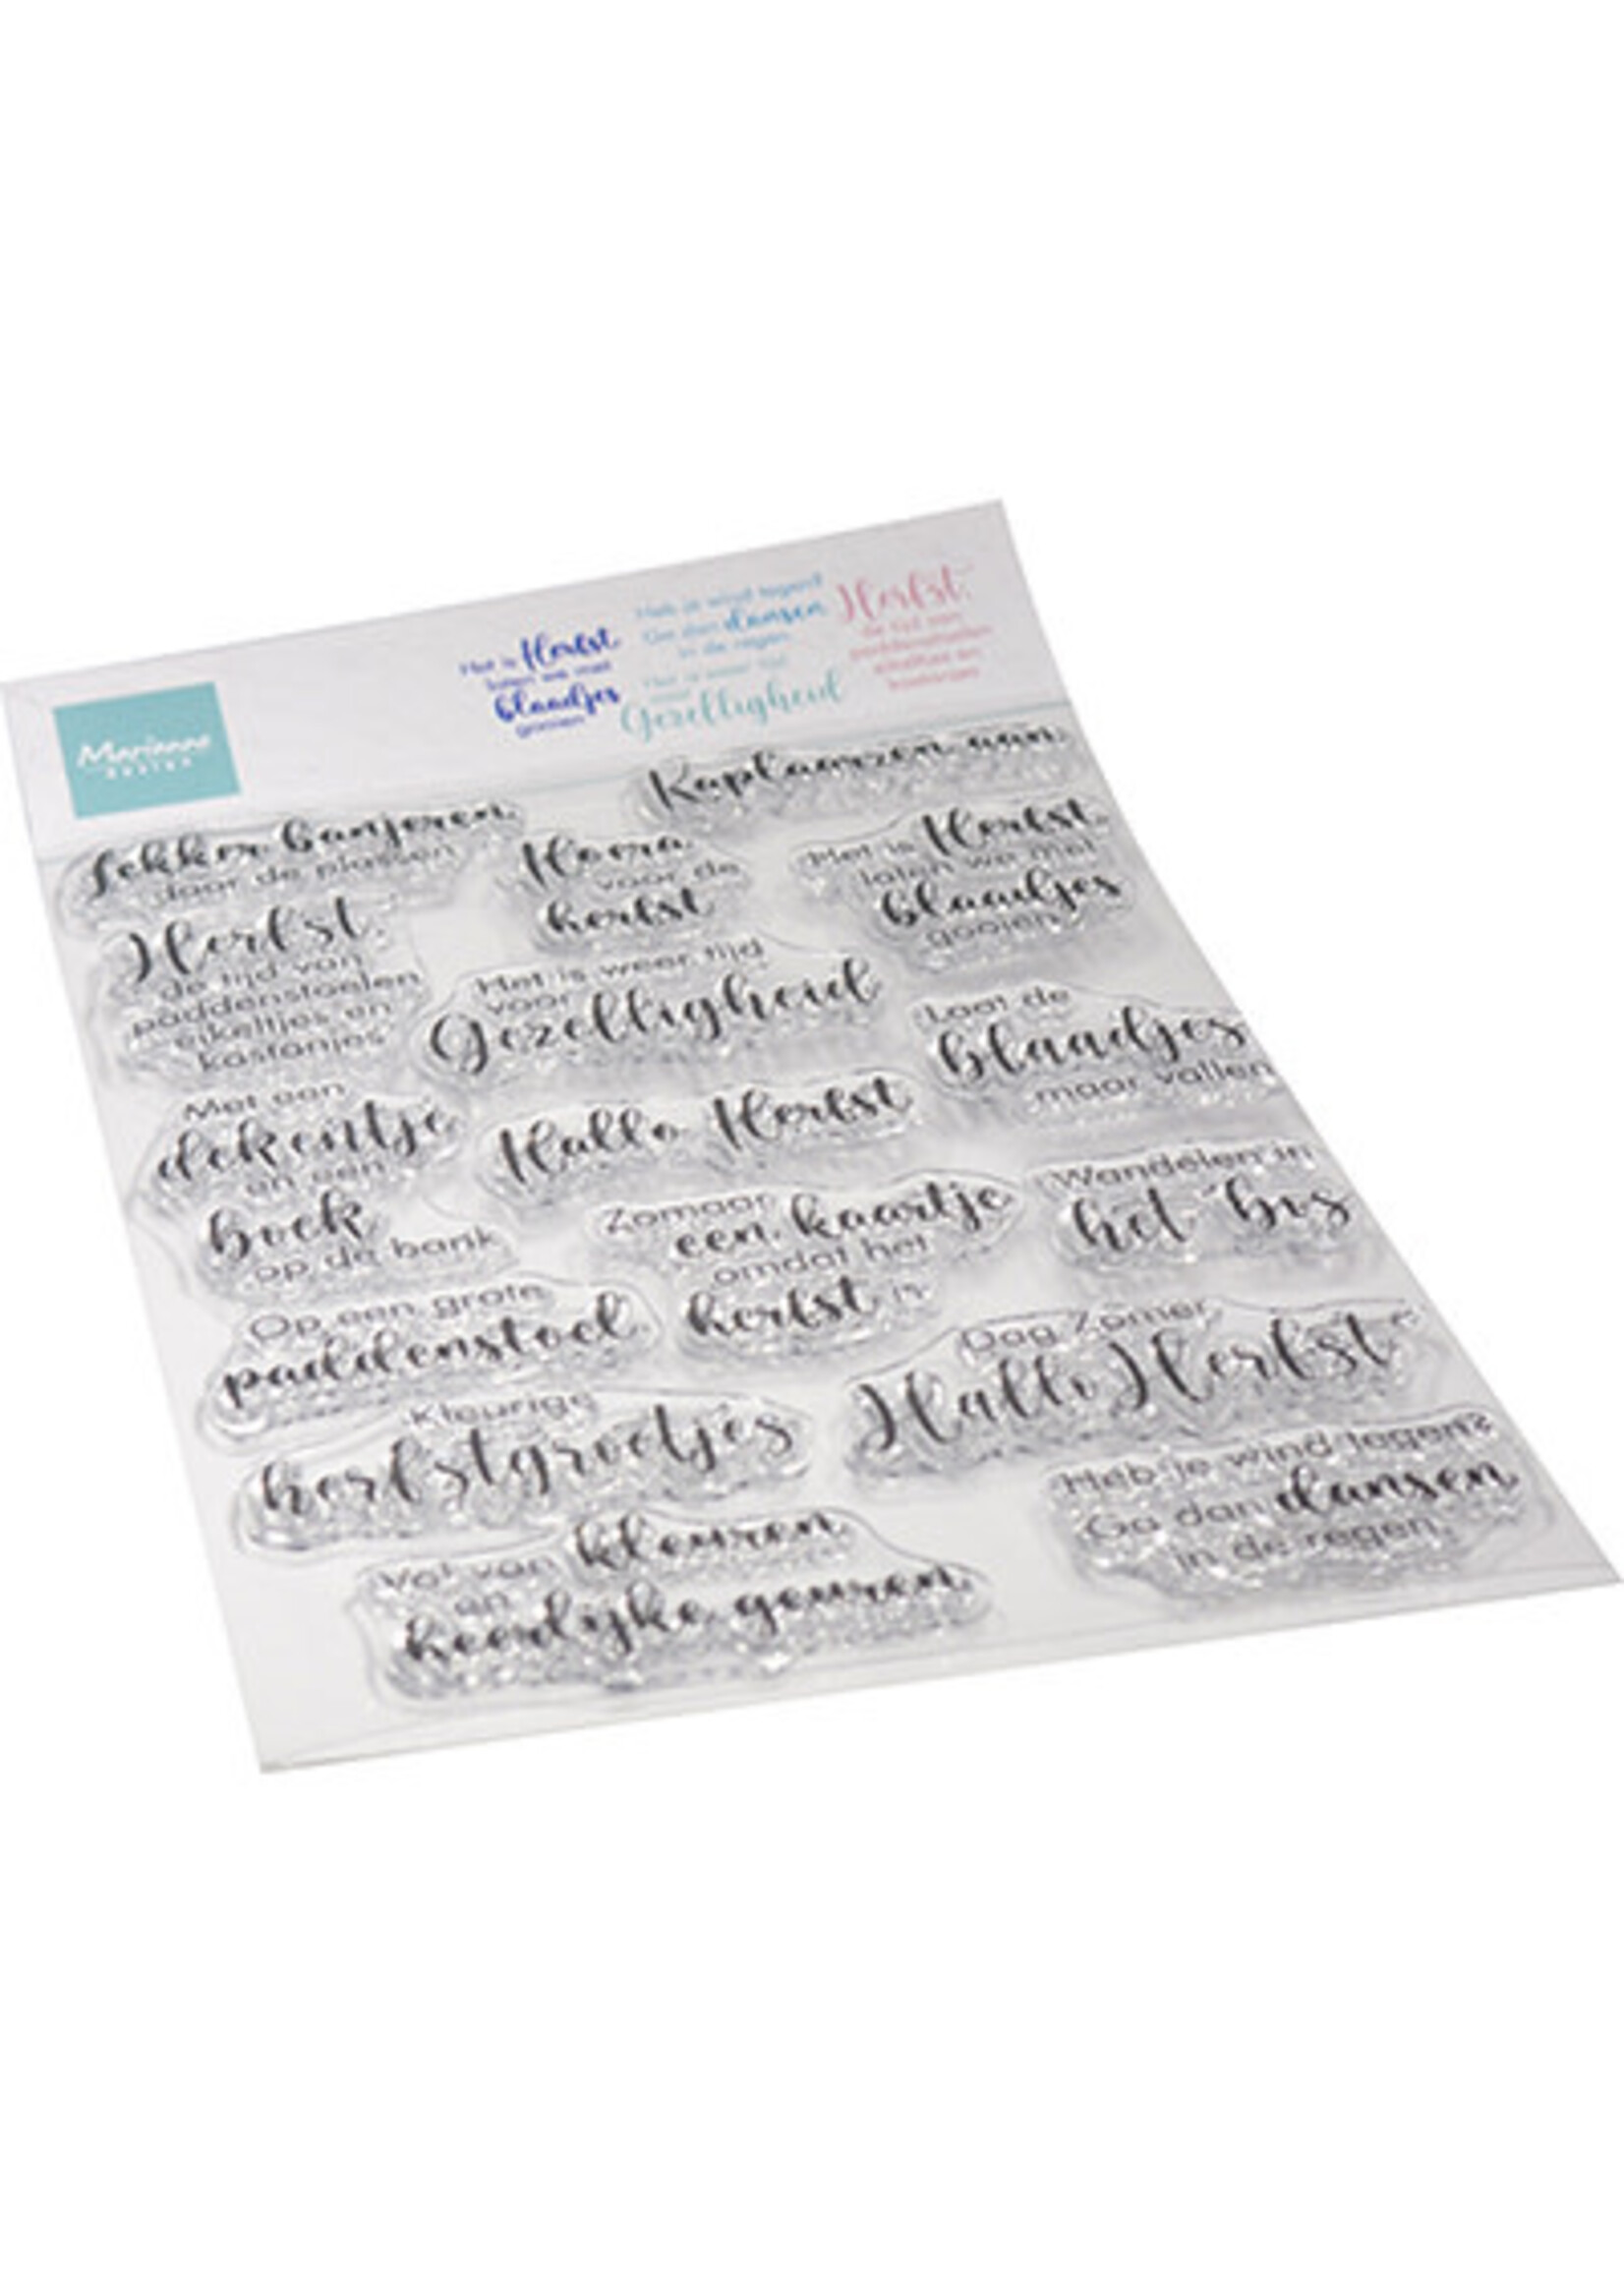 Marianne
design
Het is Herfst
laten we met
blaadjes
gooien
Heb je wind tegen?
Ga dan dansen
in de regen
Het is weer tijd
voor
Gezelligheid
Herfst
de tijd van
paddenstoelen
eikeltjes en
kastanjes
Kaplaarzen aan
Lekker banjeren
door de plassen
Hoera
voor de
herfst
Het is Herfst
laten we met
blaadjes
gooien
Herfst
de tijd van
paddenstoelen
eikeltjes en
kastanjes
Het is weer tijd
voor
Gezelligheid
Laat de
blaadjes
maar vallen
Met een
dekentje
en een
boek
op de bank
Hallo Herfst
Wandelen in
het bos
Zomaar
een kaartje
omdat het
herfst is
Op een grote
paddenstoel
Dag Zomer
Hallo Herfst
Kleurige
herfstgroetjes
Heb je wind tegen?
Ga dan dansen
in de regen
Vol van kleuren
en
heerlijke geuren